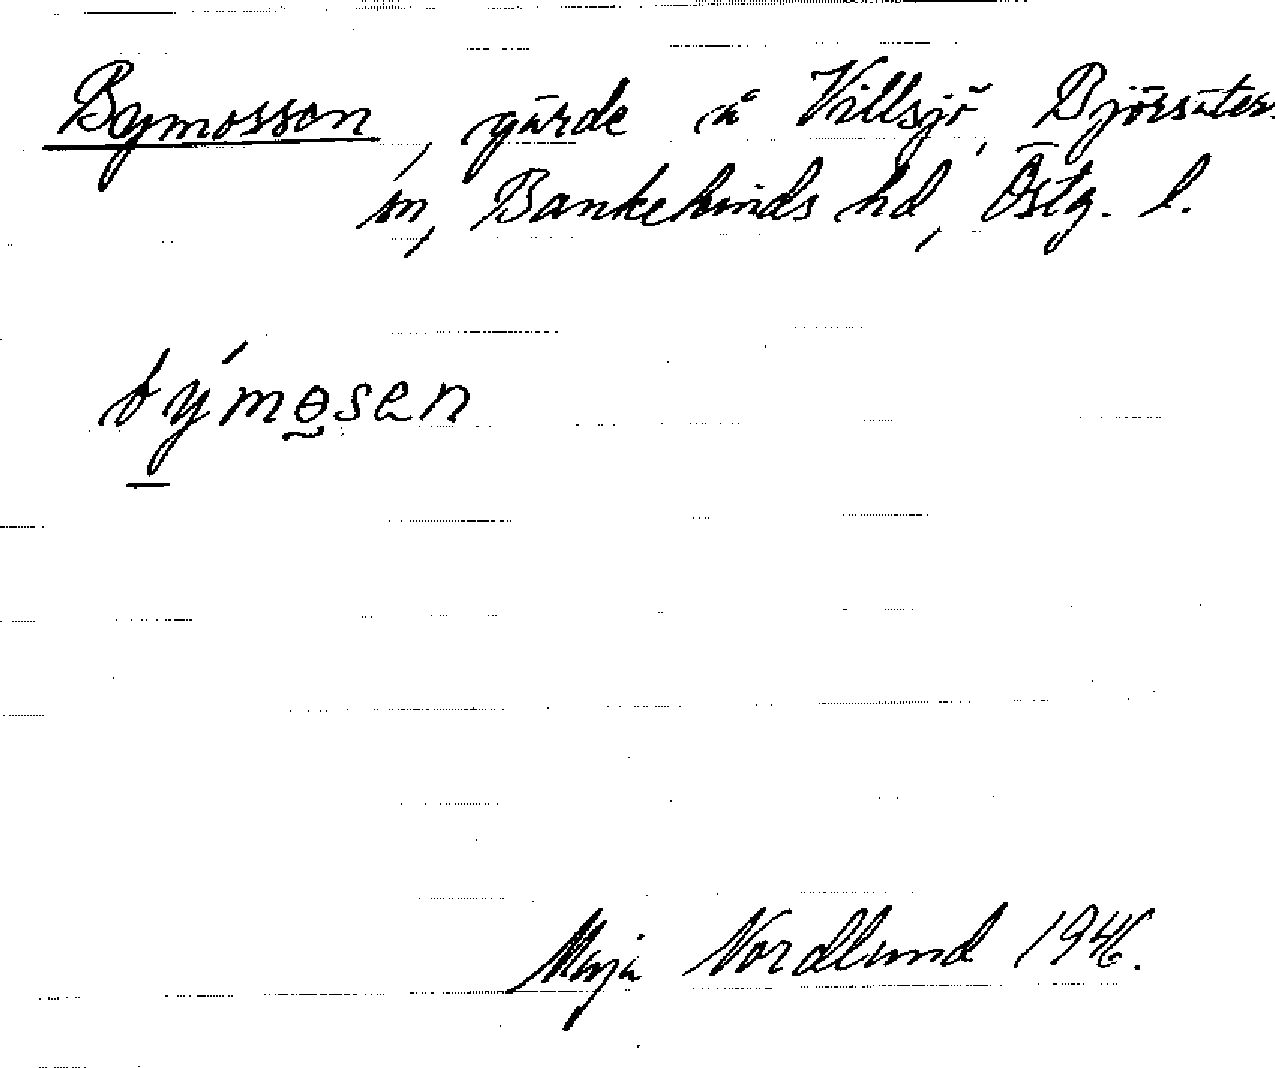 Bymossen, gärde å Villsjö, Björsäters
sn, Bankekinds hd, Östg. l.
býmɵsen
Maja Nordlund 1946.